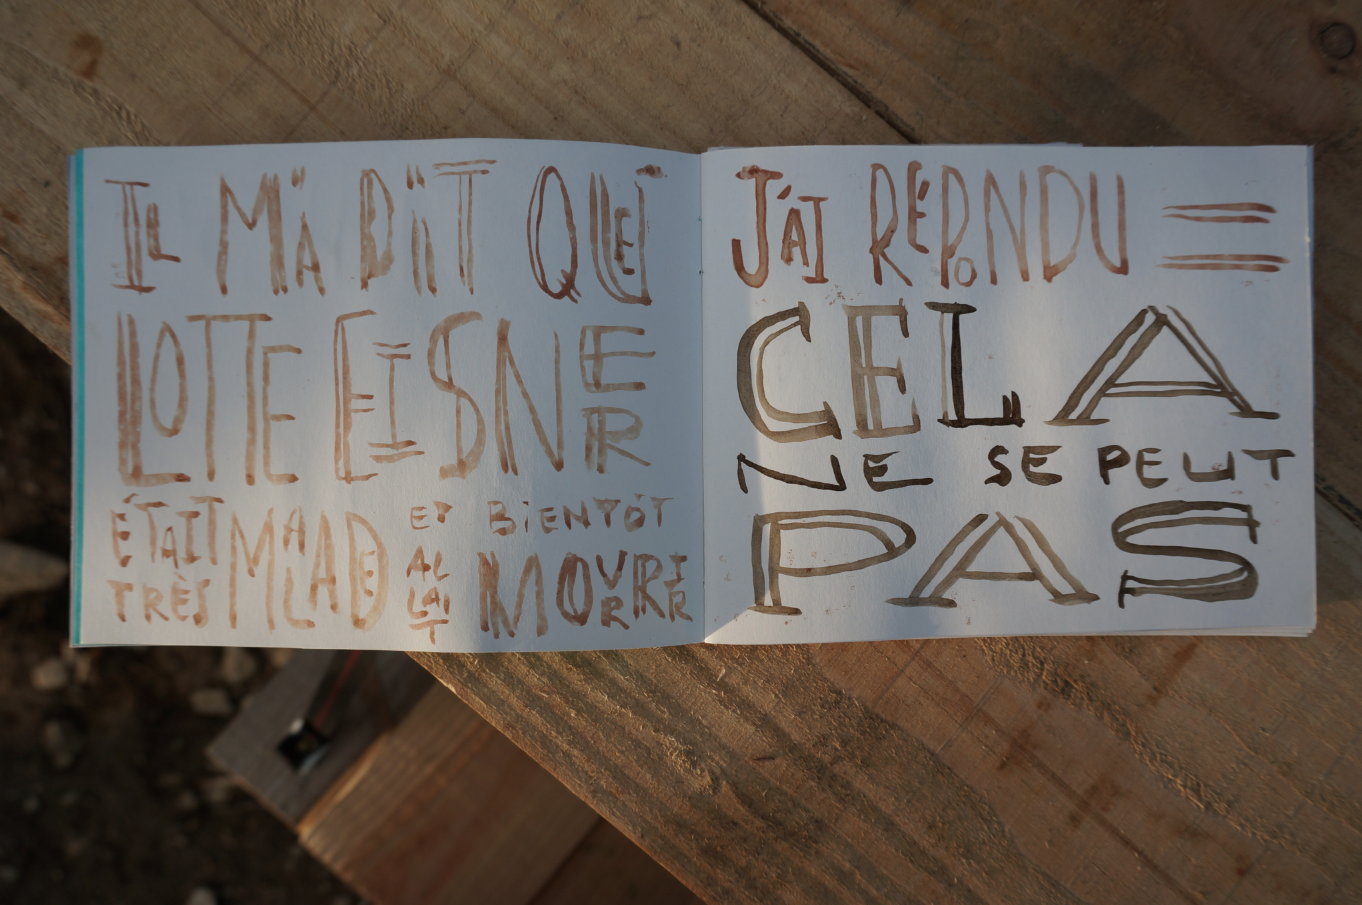 IL M'A DIT QUE
LOTTE EISNER
ÉTAIT TRÈS MALADE ET BIENTÔT ALLAIT MOURIR
J'AI RÉPONDU =
CELA
NE SE PEUT
PAS